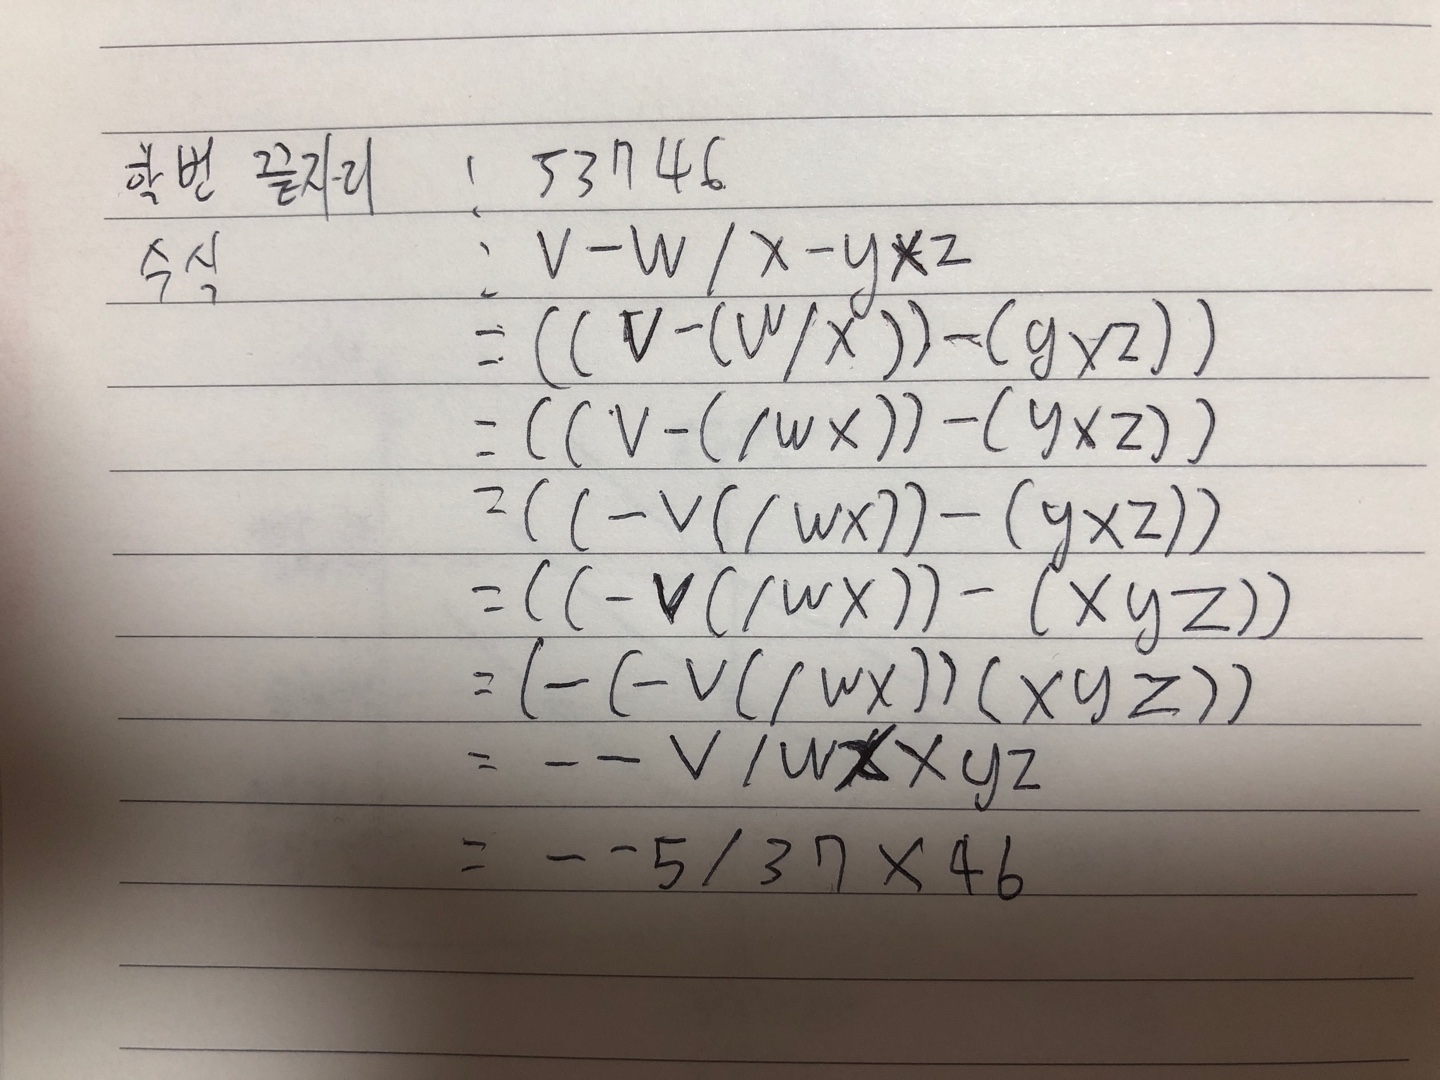 학번 끝자리 : 53746
수식 : V-W/X-y×z
=((V-(W/X))-(y×z))
=((V-(/WX))-(y×z))
=((-V(/WX))-(y×z))
=((-V(/WX))-(×yz))
=(-(-V(/WX))(×yz))
=--V/WX×yz
=--5/37×46